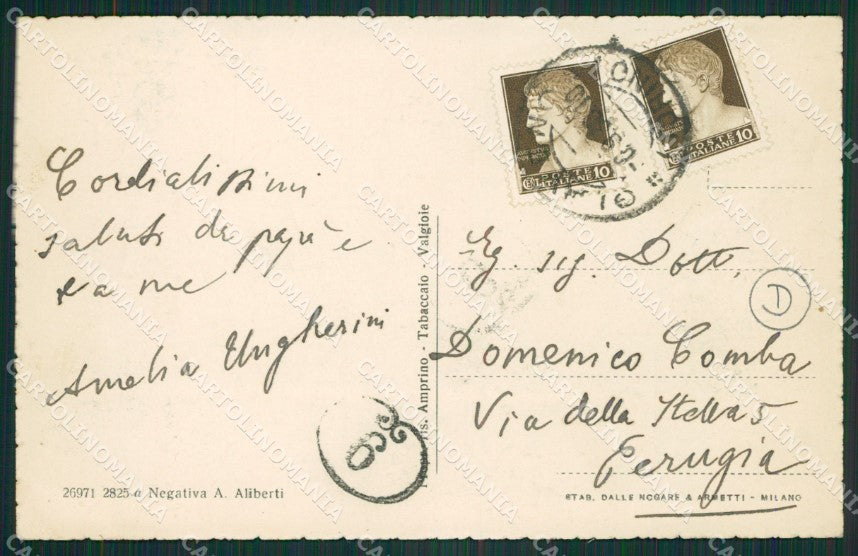 Cordialissimi
saluti da papà e
da me
Amelia Ungherini
26971 2825-a Negativa A. Aliberti
ris. Amprino - Tabaccaio - Valgioie
POSTE
ITALIANE 10
POSTE
ITALIANE 10
Eg. sig. Dott.
D
Domenico Comba
Via della Stella 5
Perugia
STAB. DALLE NOGARE & ARMETTI - MILANO
CARTOLINOMANIA